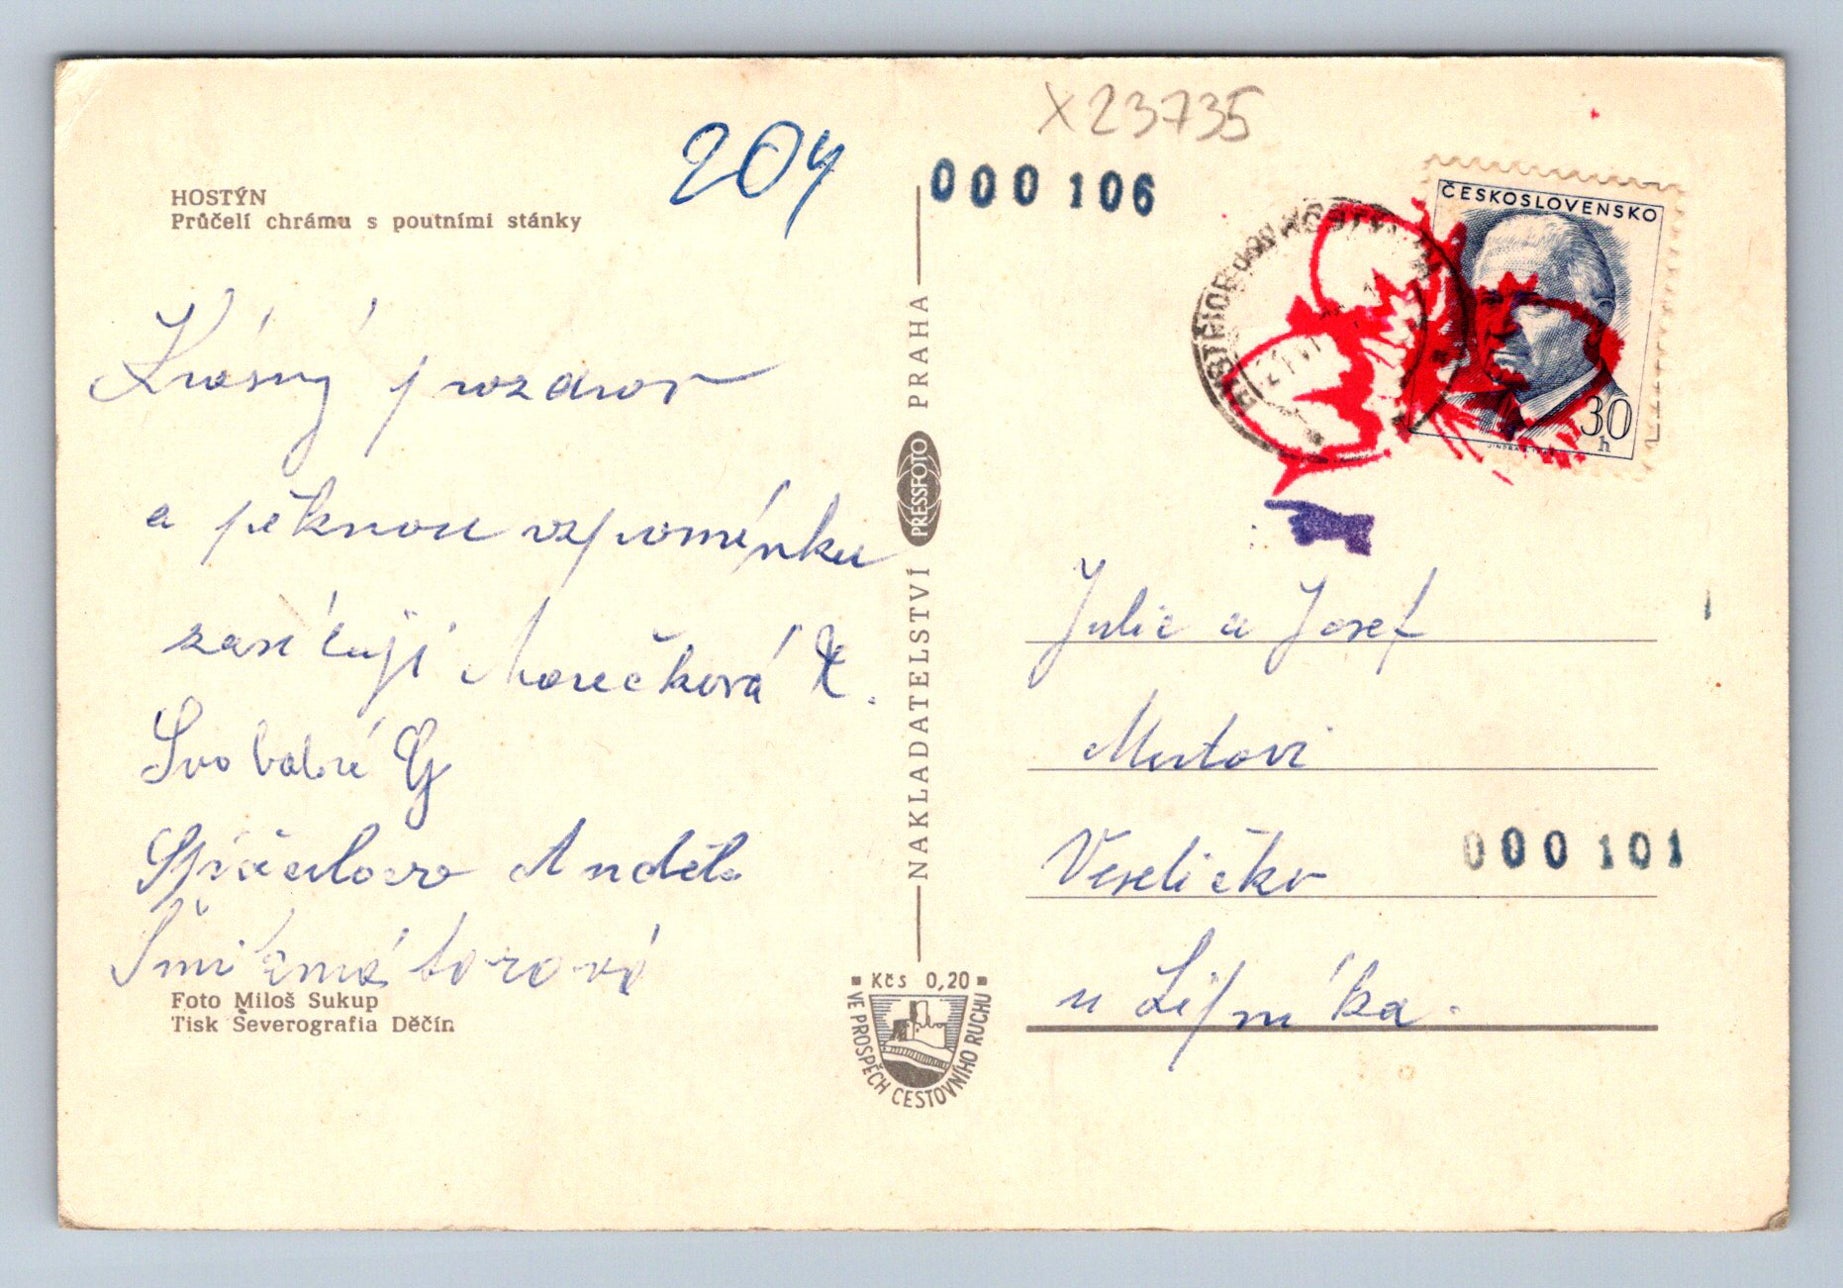 X23735
204
000 106
HOSTÝN
Průčelí chrámu s poutními stánky
ČESKOSLOVENSKO
30
h
BYSTŘICE pod HOSTÝNEM
Krásný pozdrav
a pěknou vzpomínku
zasílají Marečková
Svobodné
Anděla
Foto Miloš Sukup
Tisk Severografia Děčín
NAKLADATELSTVÍ PRESSFOTO PRAHA
Kčs 0,20
VE PROSPĚCH CESTOVNÍHO RUCHU
Julie a Josef
Veselíčko
000 101
u Lipníka.